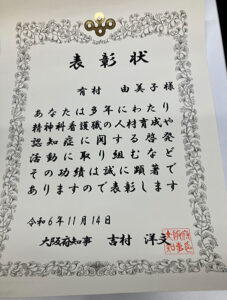 表彰状
有村 由美子様
あなたは多年にわたり
精神科看護職の人材育成や
認知症に関する啓発
活動に取り組むなど
その功績は誠に顕著で
ありますので表彰します
令和6年11月14日
大阪府知事 吉村 洋文